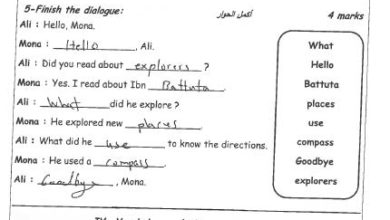 5-Finish the dialogue: أكمل الحوار 4 marks
Ali : Hello, Mona.
Mona : Hello, Ali.
Ali : Did you read about explorers ?
Mona : Yes. I read about Ibn Battuta.
Ali : What did he explore ?
Mona : He explored new places.
Ali : What did he use to know the directions.
Mona : He used a compass.
Ali : Goodbye, Mona.
What
Hello
Battuta
places
use
compass
Goodbye
explorers